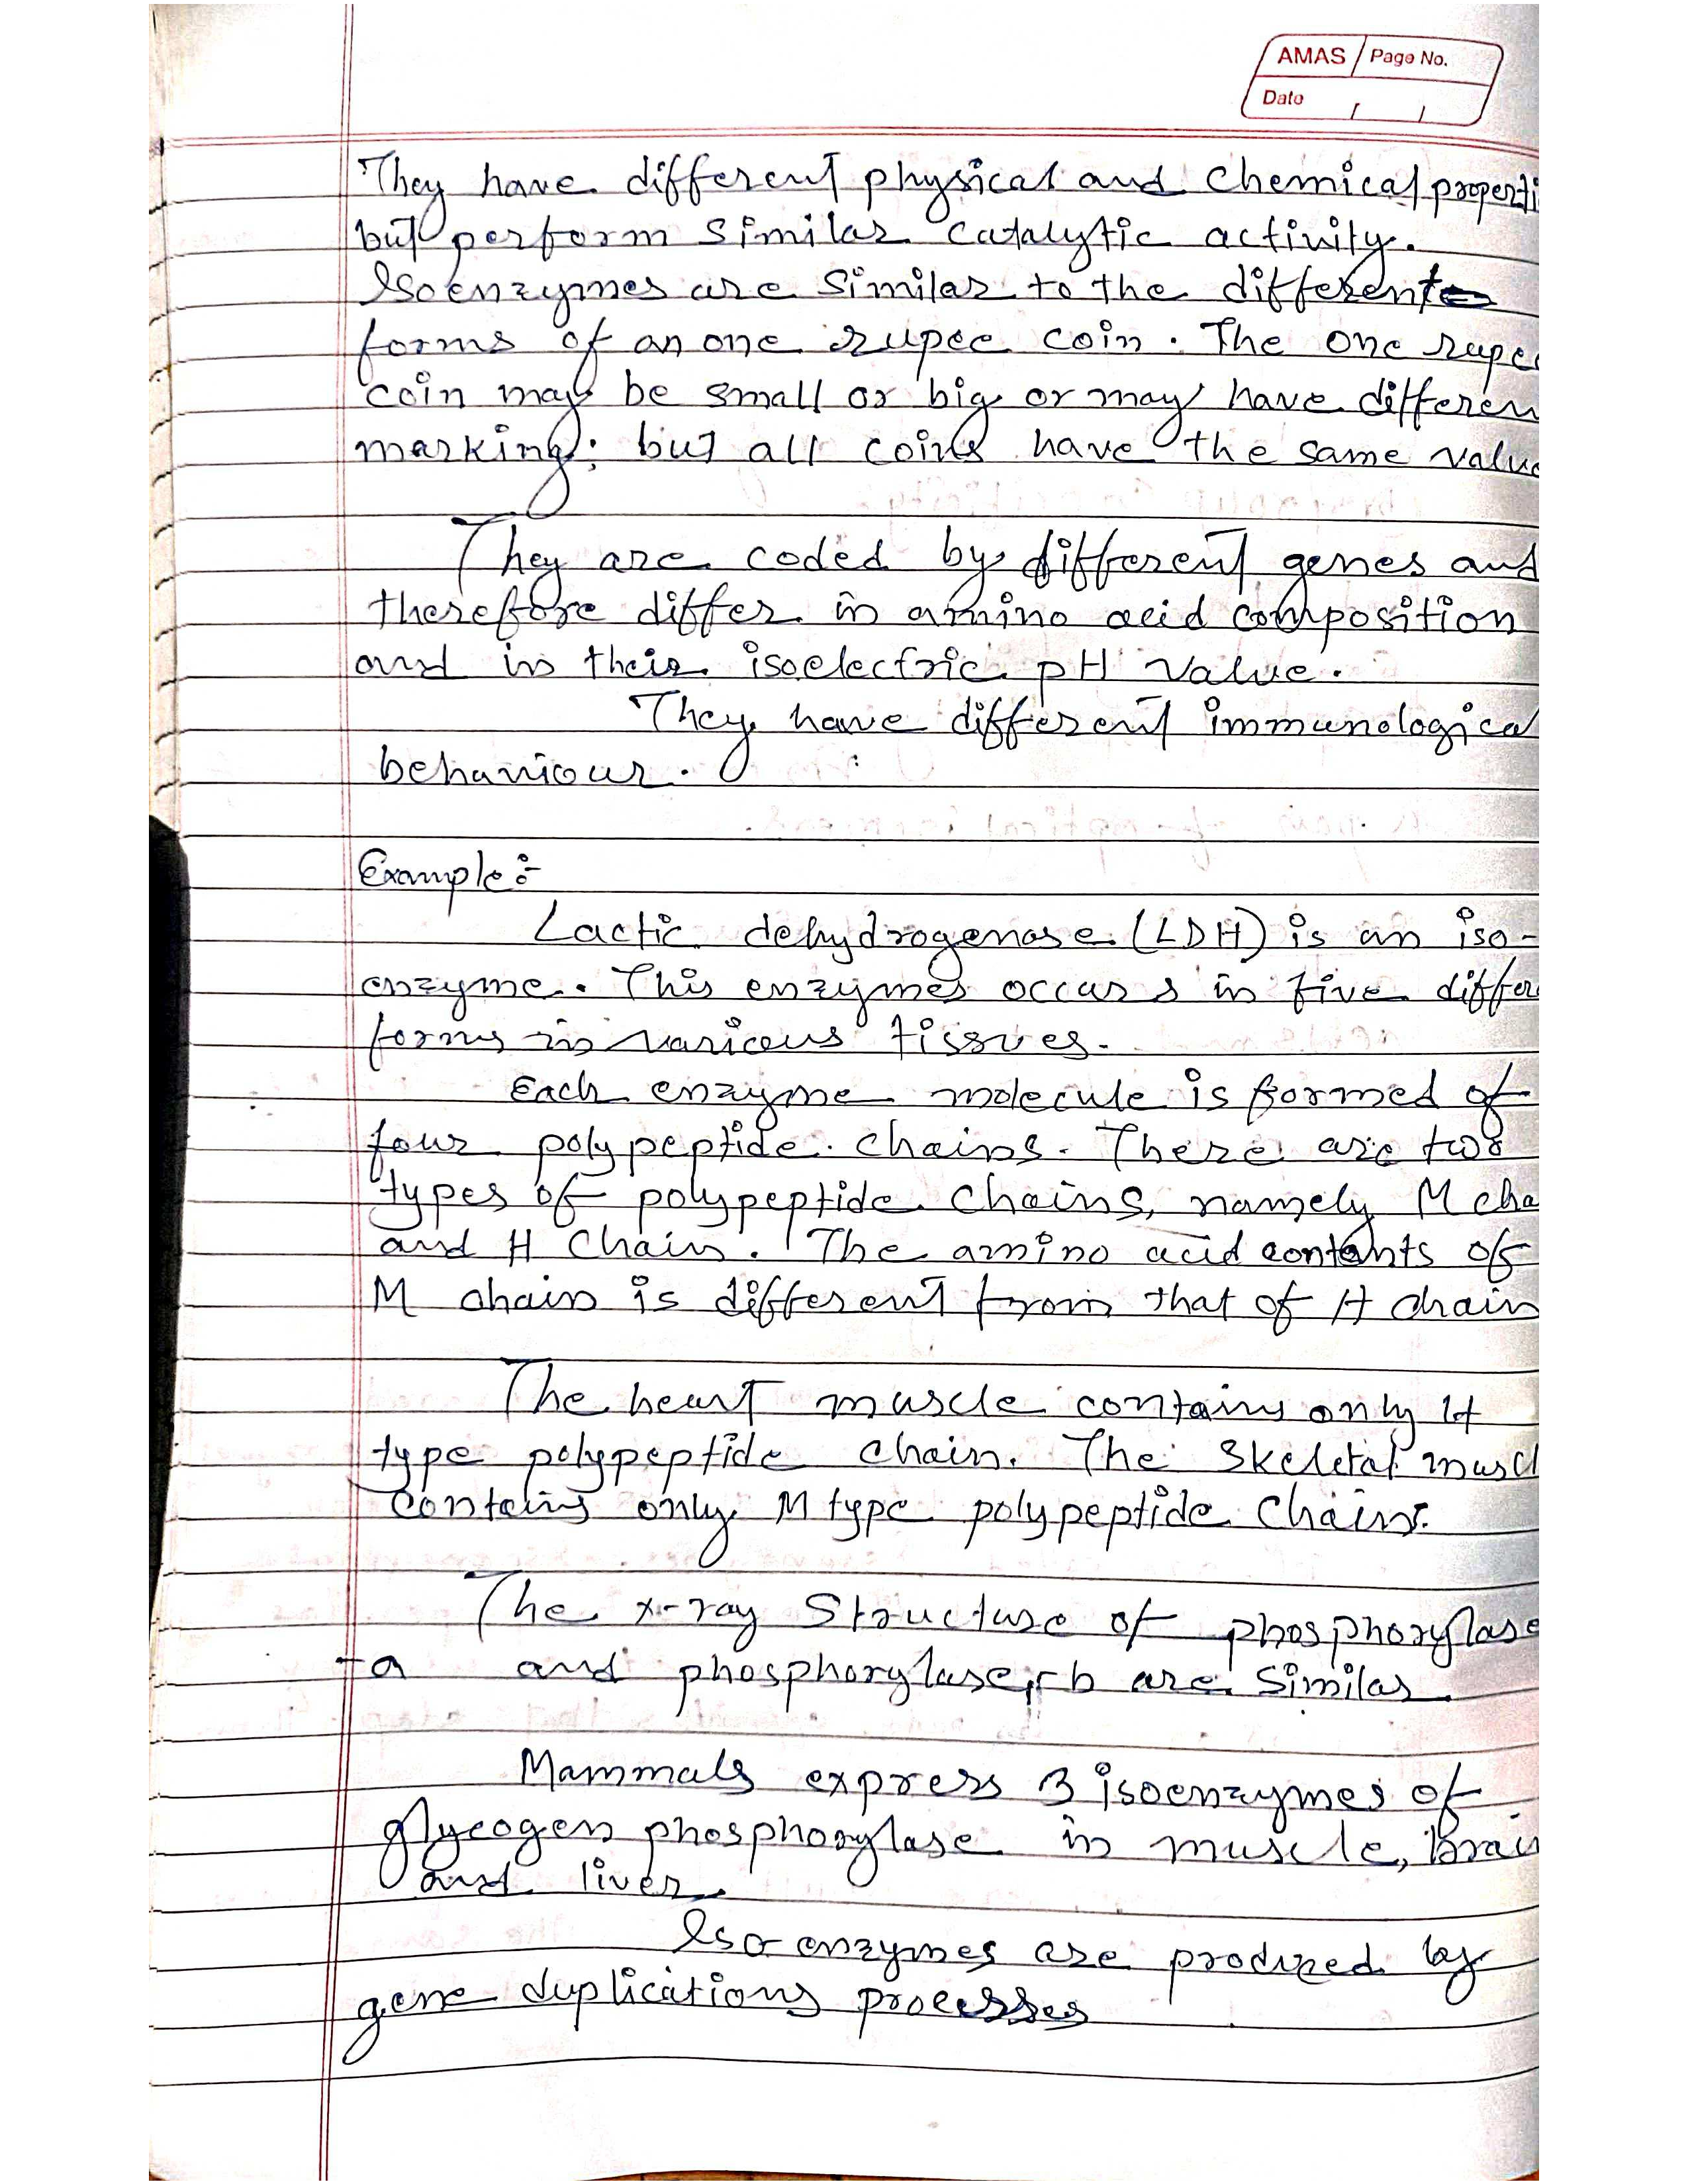 AMAS Page No.
Date / /
They have different physical and Chemical properti
but perform similar catalytic activity.
Isoenzymes are similar to the different
forms of an one rupee coin. The one rupee
coin may be small or big or may have differen
marking; but all coins have the same value
They are coded by different genes and
therefore differ in amino acid composition
and in their isoelectric pH value.
They have different immunological
behaviour.
Example:-
Lactic dehydrogenase (LDH) is an iso-
enzyme. This enzymes occurs in five differ
forms in various tissues.
Each enzyme molecule is formed of
four polypeptide chains. There are two
types of polypeptide chains, namely M cha
and H Chain. The amino acid contents of
M chain is different from that of H chain
The heart muscle contains only H
type polypeptide chain. The Skeletal muscl
contains only M type polypeptide chains.
The x-ray Structure of phosphorylase
-a and phosphorylase-b are similar.
Mammals express 3 isoenzymes of
glycogen phosphorylase in muscle, brain
and liver.
Iso-enzymes are produced by
gene duplications processes